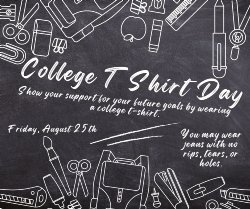 College T Shirt Day
Show your support for your future goals by wearing
a college t-shirt.
Friday, August 25th
You may wear
jeans with no
rips, tears, or
holes.